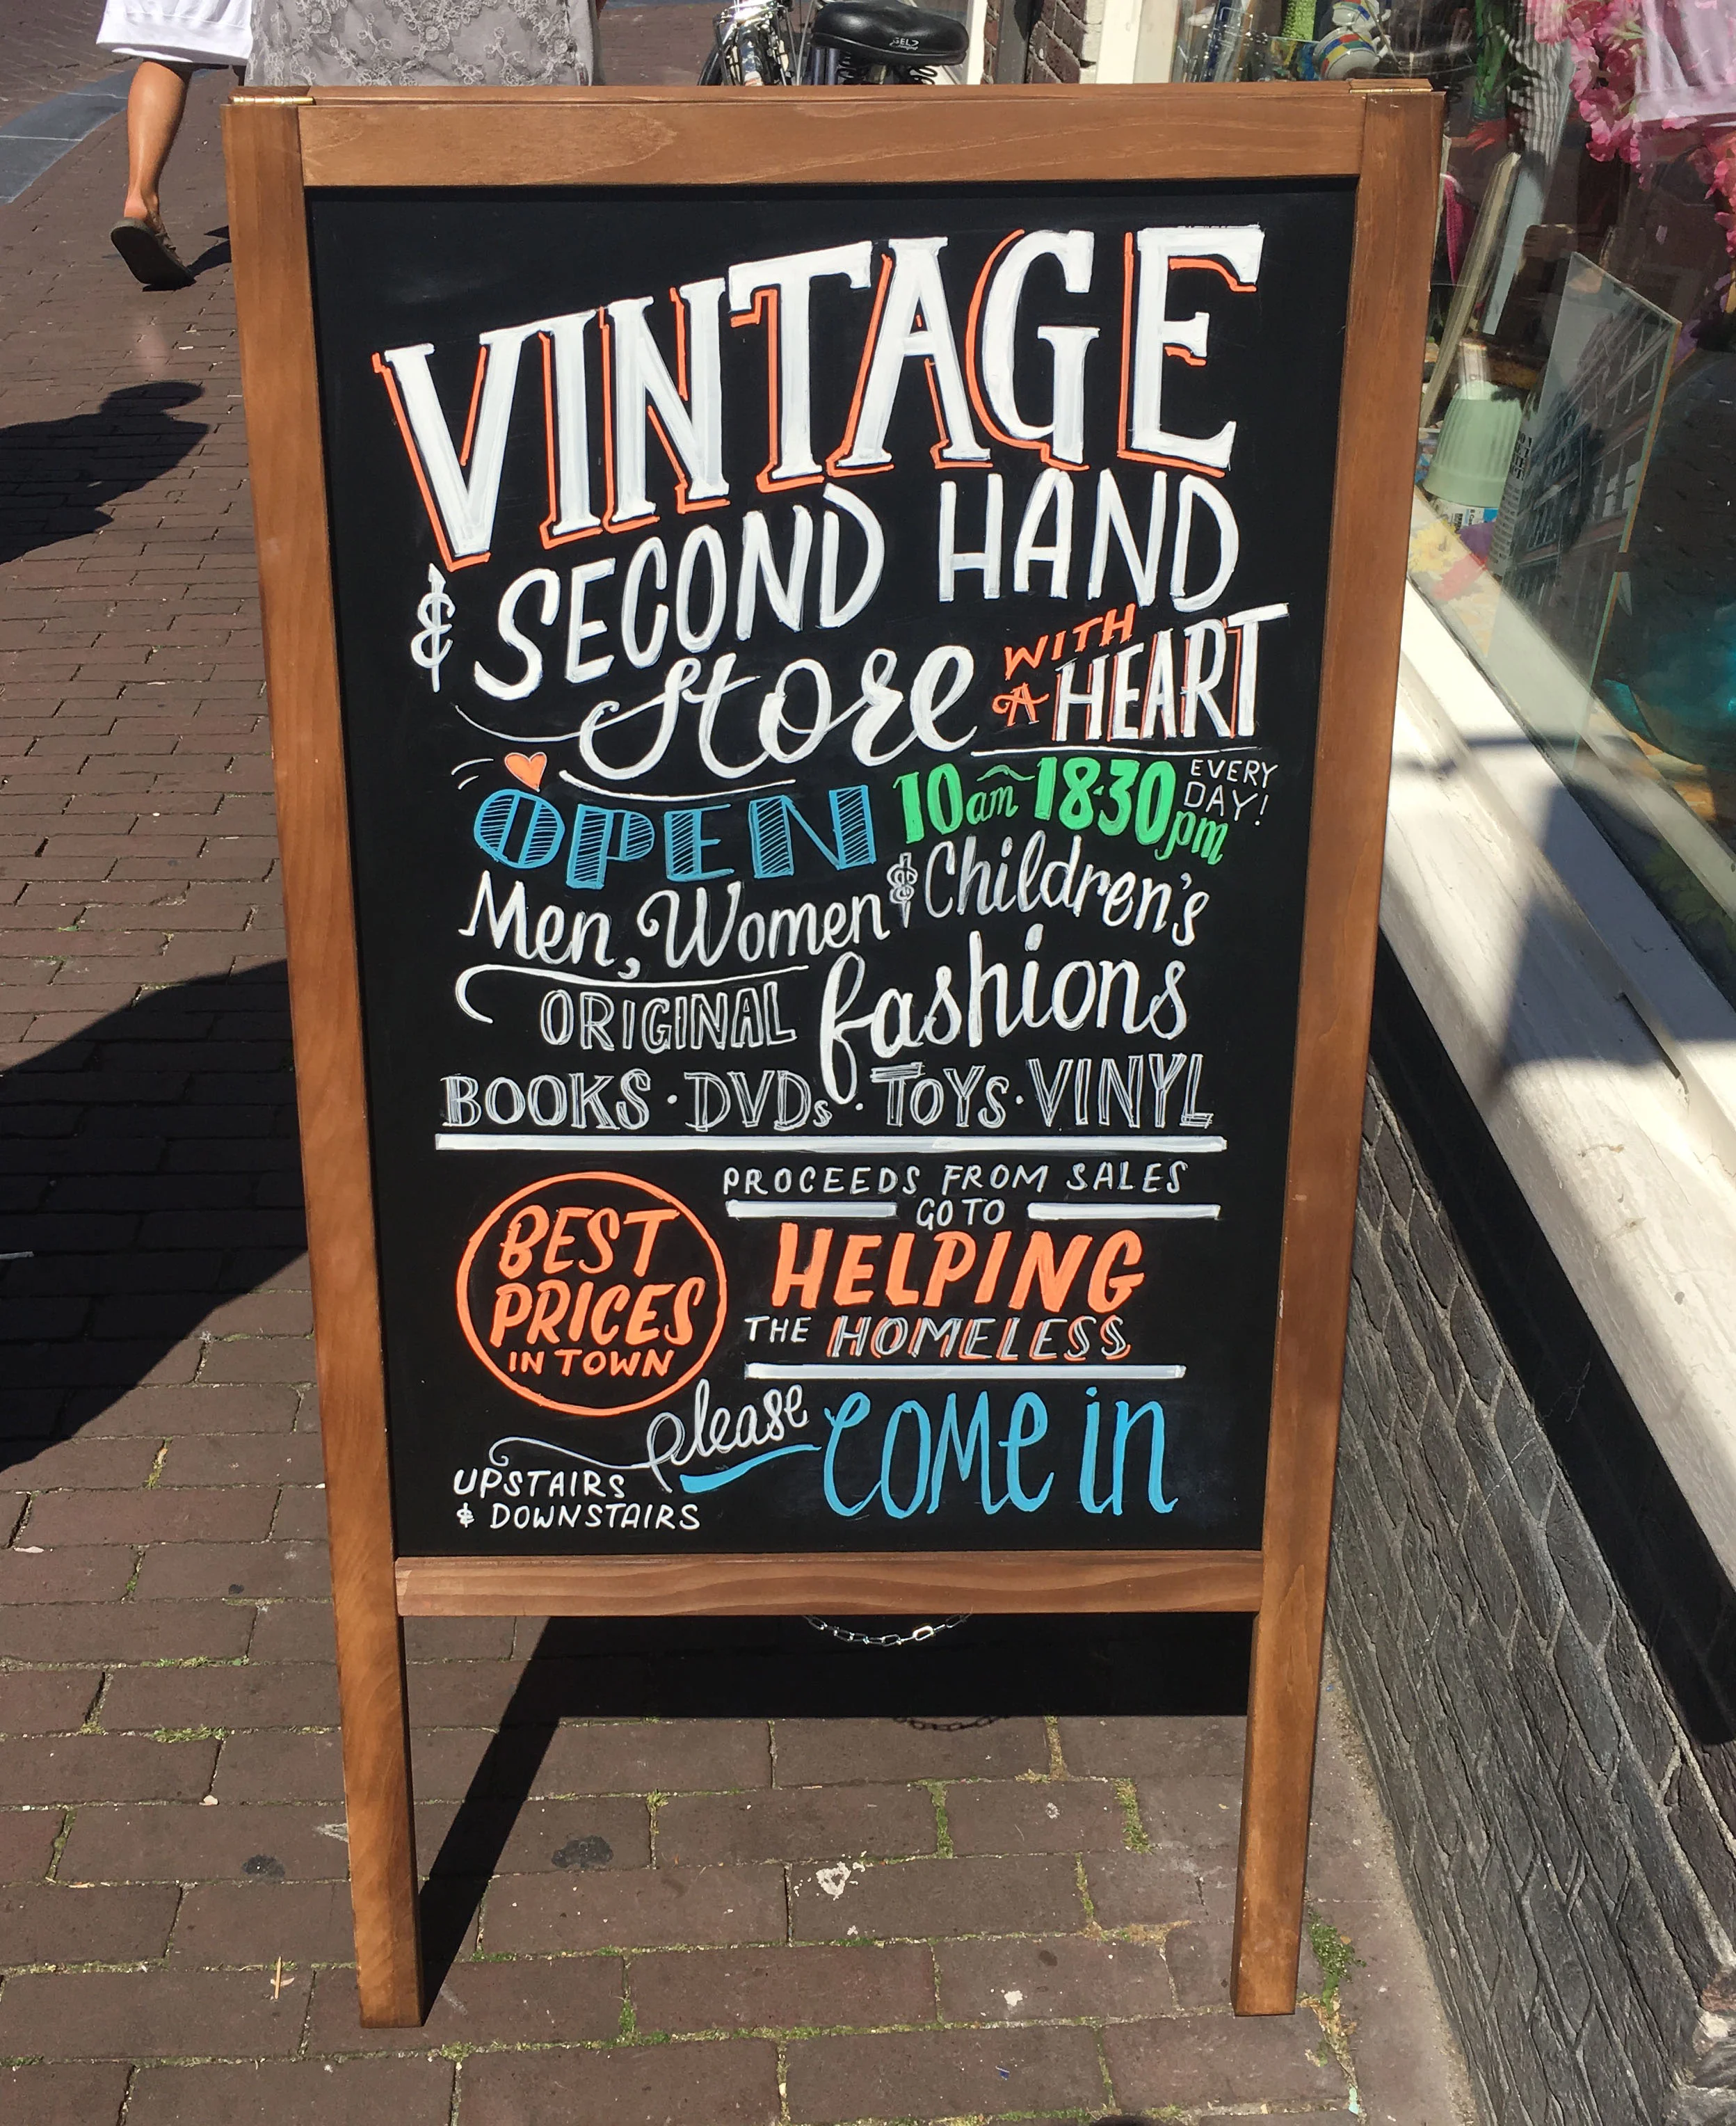 VINTAGE
& SECOND HAND
Store WITH A HEART
OPEN 10am ~ 18·30pm EVERY DAY!
Men, Women & Children's
ORIGINAL fashions
BOOKS · DVDs · TOYS · VINYL
BEST
PRICES
IN TOWN
PROCEEDS FROM SALES
GO TO
HELPING
THE HOMELESS
please COME in
UPSTAIRS
& DOWNSTAIRS